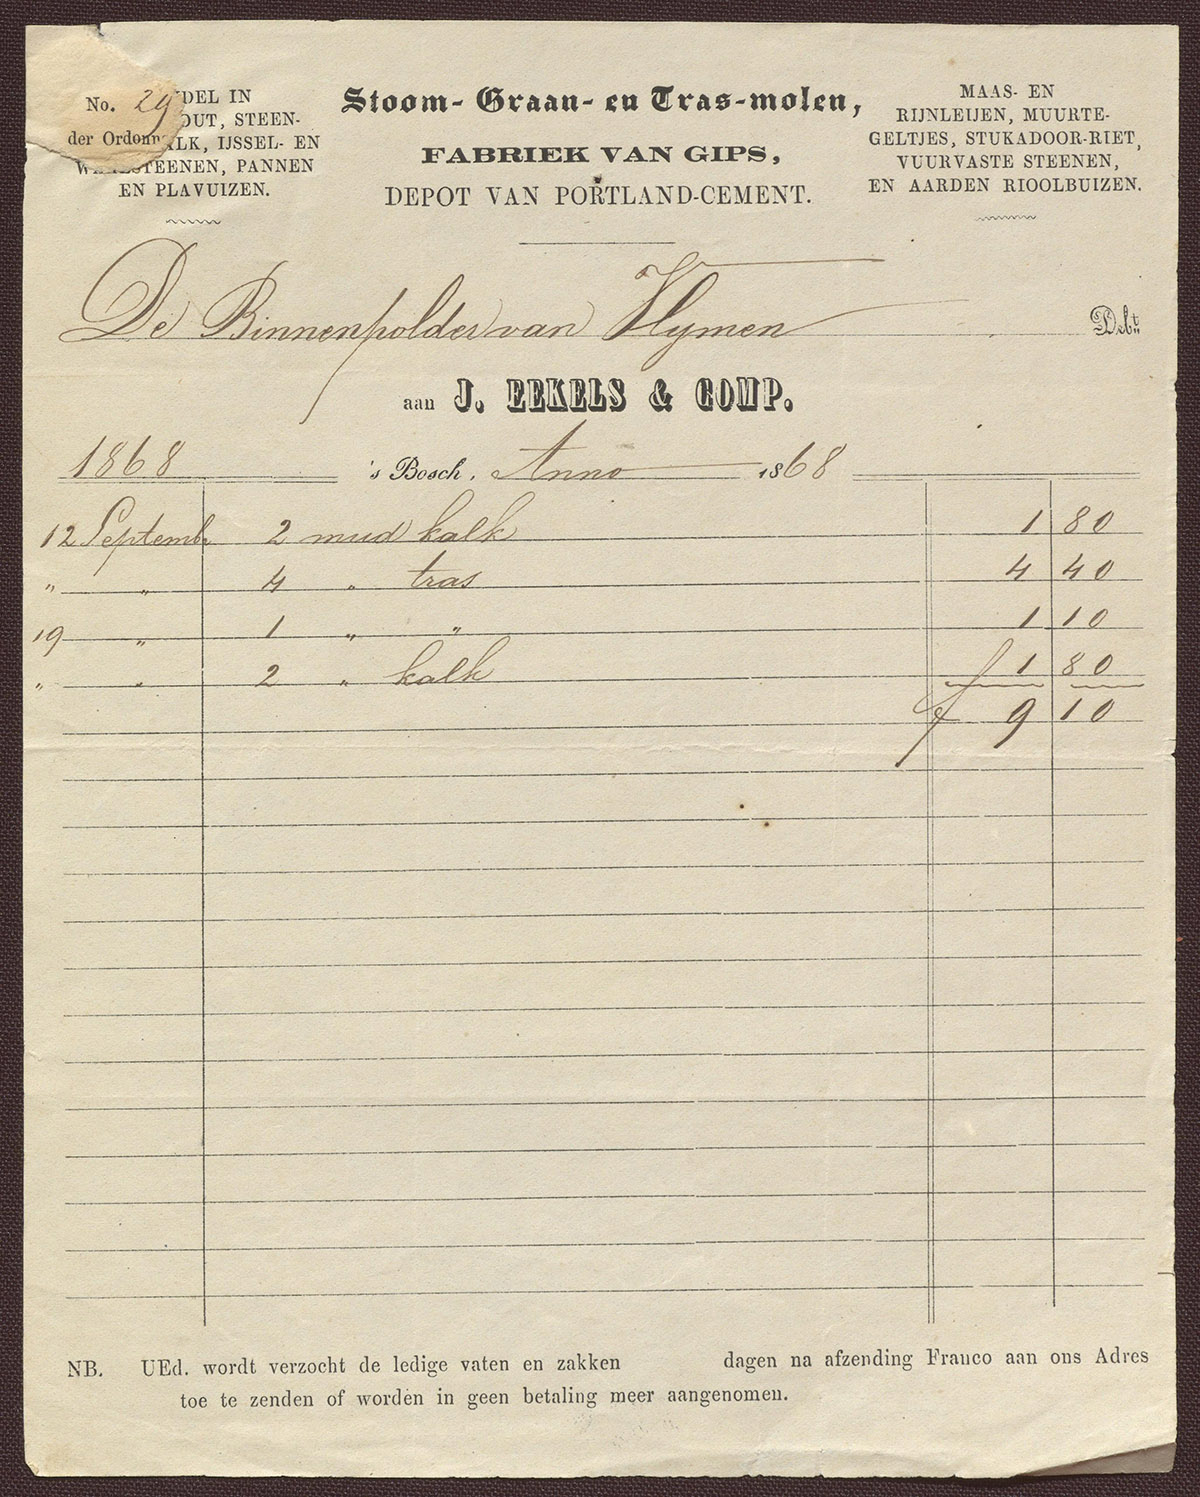 No. 29
der Ordonn
DEL IN
OUT, STEEN-
ALK, IJSSEL- EN
WAALSTEENEN, PANNEN
EN PLAVUIZEN.
Stoom- Graan- en Tras-molen,
FABRIEK VAN GIPS,
DEPOT VAN PORTLAND-CEMENT.
MAAS- EN
RIJNLEIJEN, MUURTE-
GELTJES, STUKADOOR-RIET,
VUURVASTE STEENEN,
EN AARDEN RIOOLBUIZEN.
De Binnenpolder van Vlymen Debt.
aan J. EEKELS & COMP.
1868 's Bosch, Anno 1868
12 Septemb 2 mud kalk 1 80
" " 4 " tras 4 40
19 " 1 " " 1 10
" " 2 " kalk 1 80
f 9 10
NB. UEd. wordt verzocht de ledige vaten en zakken dagen na afzending Franco aan ons Adres
toe te zenden of worden in geen betaling meer aangenomen.